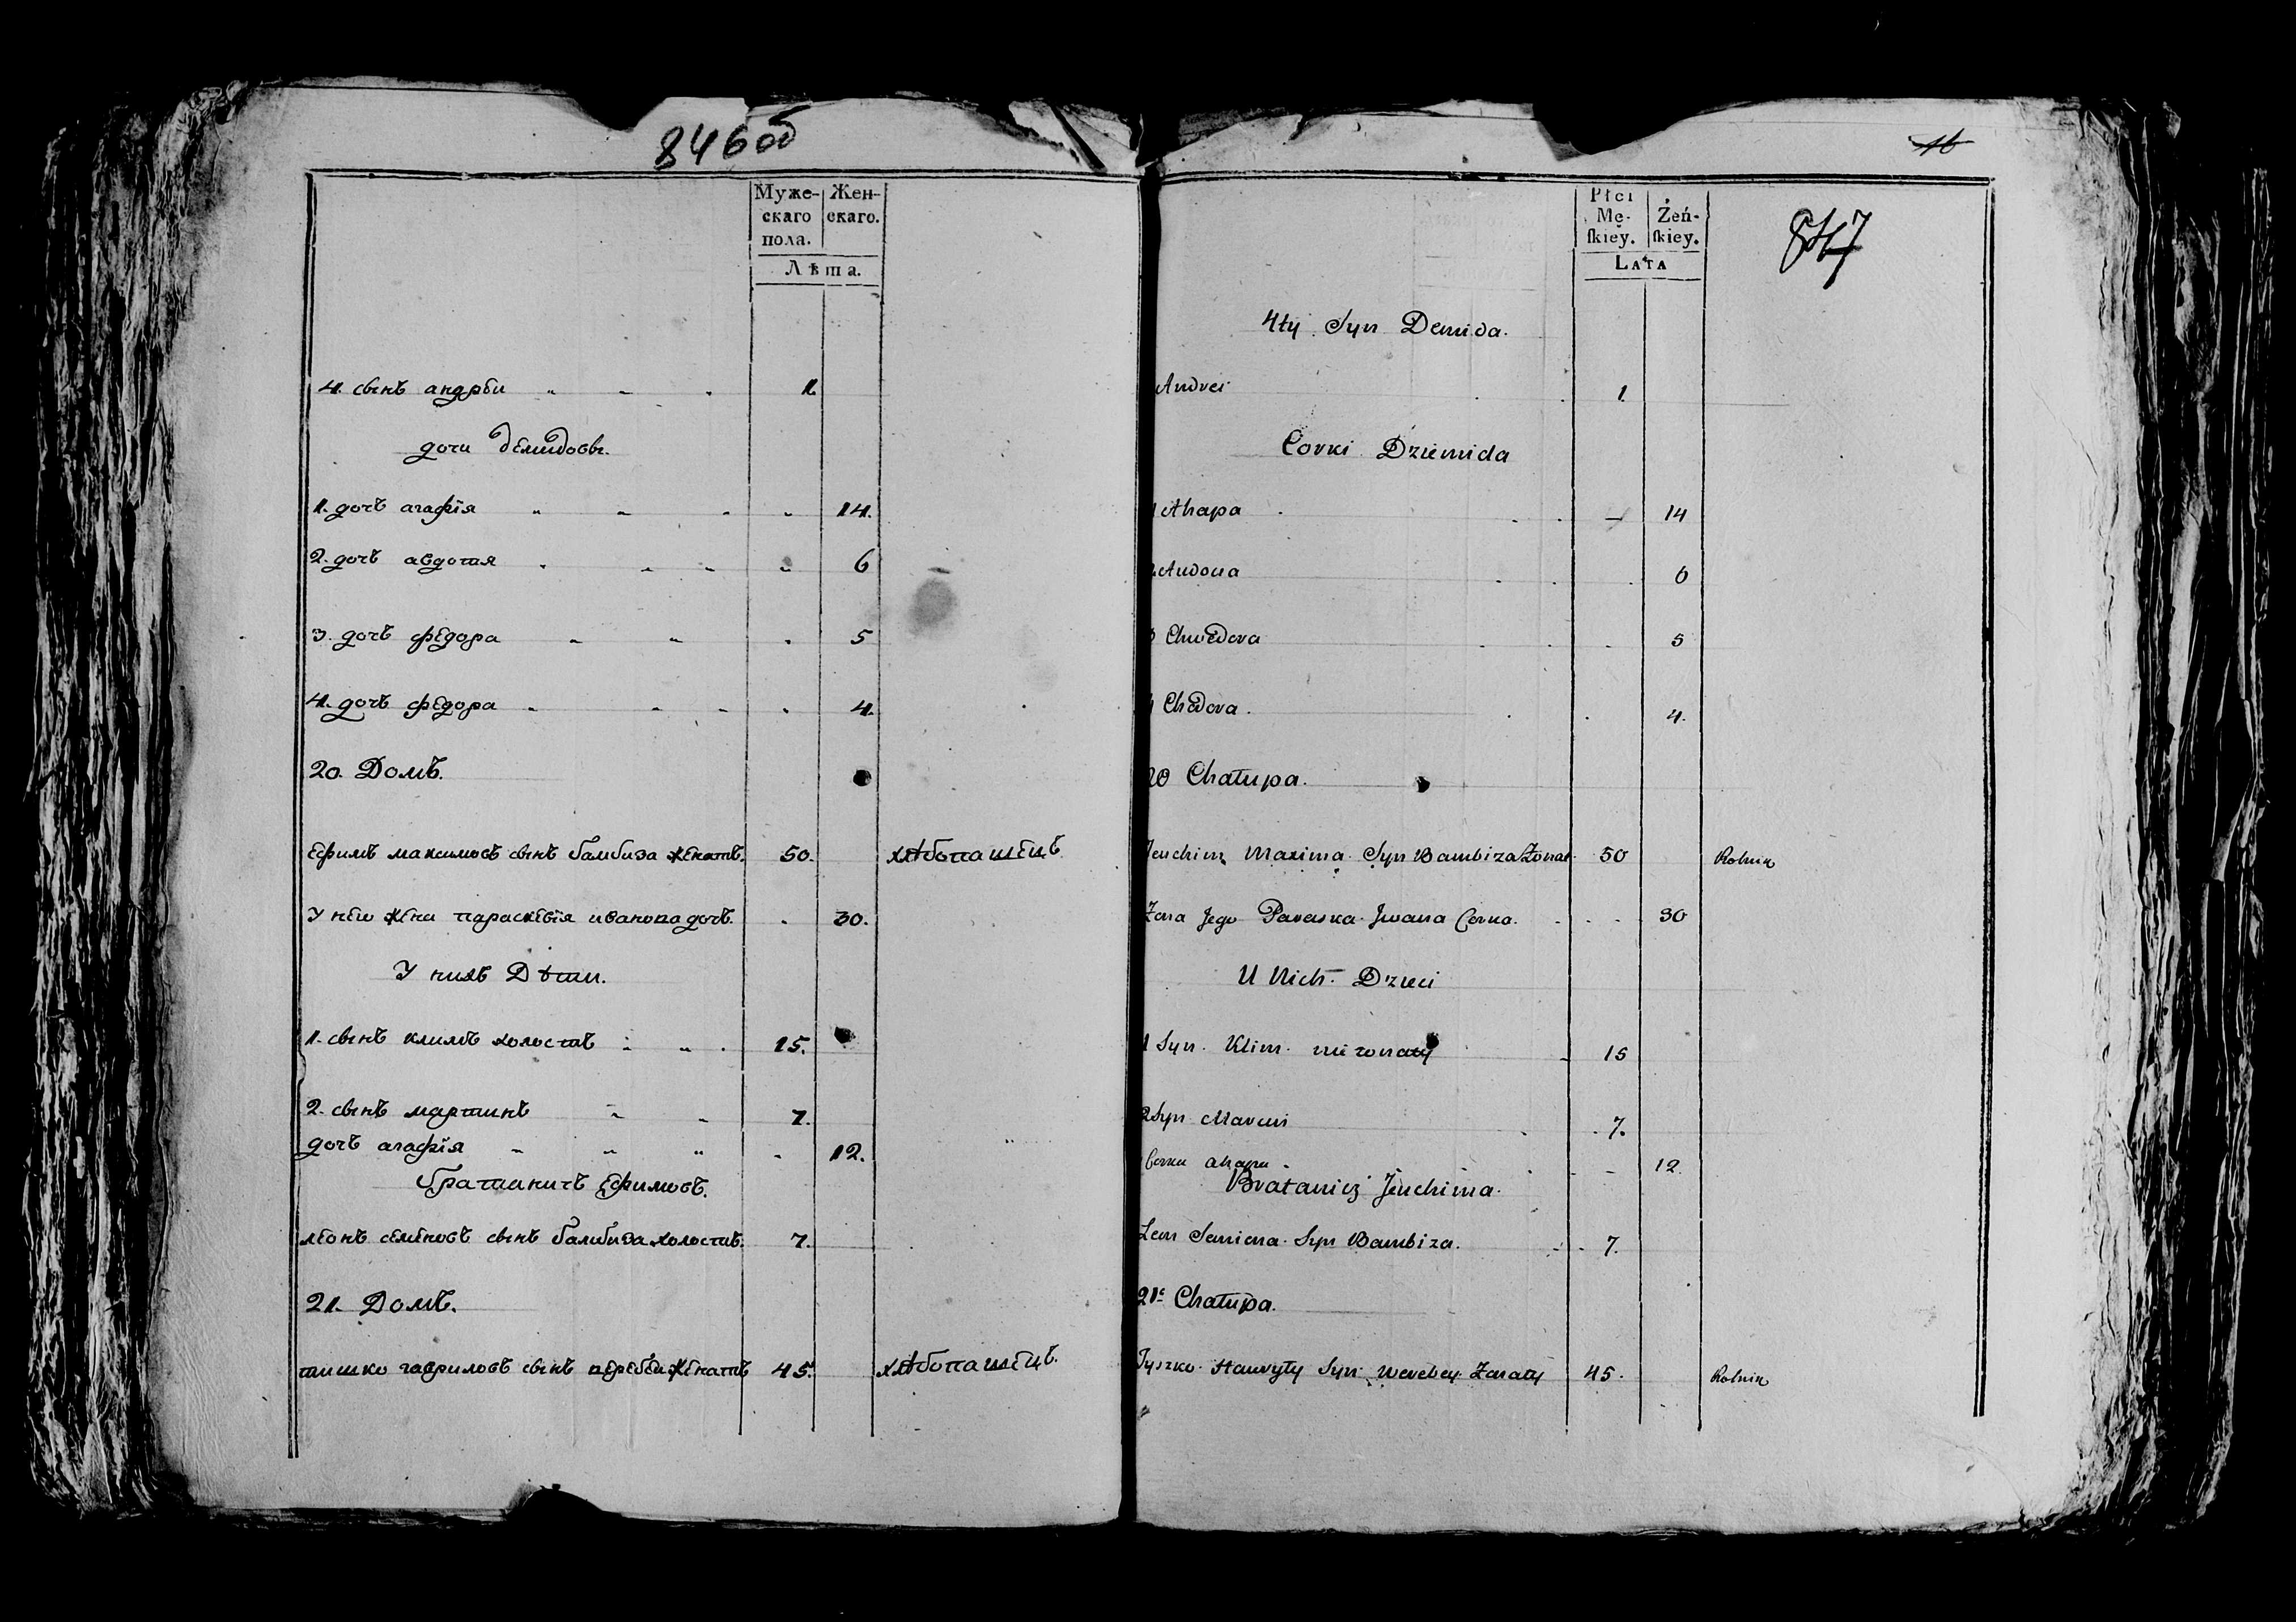 846 об
Муже-
скаго
пола.
Жен-
скаго.
Лѣта.
4. сынъ андрѣи 1.
дочи демидовы.
1. дочъ агафiя 14.
2. дочъ авдотия 6
3. дочъ федора 5
4. дочъ федора 4.
20. Домъ.
ефимъ максимовъ сынъ бамбиза женатъ. 50. хлѣбопашецъ
У нею жена параскевiя иванова дочъ. 30.
У нихъ Дѣти.
1. сынъ климъ холостъ 15.
2. сынъ мартинъ 7.
дочъ агафiя 12.
братаничъ ефимовъ.
леонъ семеновъ сынъ бамбиза холостъ. 7.
21. Домъ.
тишко гавриловъ сынъ веребеи женатъ 45. хлѣбопашецъ.
16
847
Płci
Mę-
ſkiey.
Żeń-
ſkiey.
LATA
4ty Syn Demida.
Andrei 1.
Corki Dziemida
1 Ahapa 14
Audocia 6
3 Chwedora 5
4 Chedora. 4.
20 Chałupa.
Jeuchim Maxima Syn Bambiza Zonat. 50 Rolnik
Zona Jego Paraska Jwana Corka. 30
U Nich Dzieci
1 Syn Klim niezonaty 15
2 Syn Marcin 7.
Corka ahapa 12.
Bratanicz Jeuchima.
Leon Semiona Syn Bambiza. 7.
21 Chałupa.
Tyszko Hawryły Syn werebey Zonaty 45. Rolnik